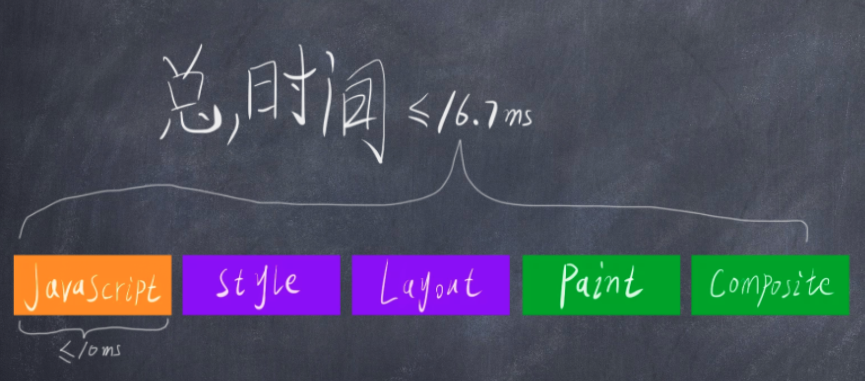 总时间 ≤16.7ms
JavaScript Style Layout Paint Composite
≤10ms